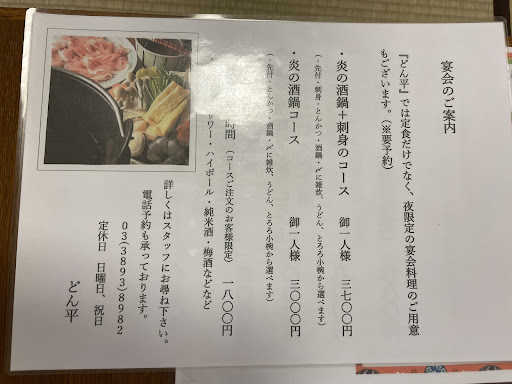 宴会のご案内
『どん平』では定食だけでなく、夜限定の宴会料理のご用意
もございます。（※要予約）
・炎の酒鍋＋刺身のコース 御一人様 三七〇〇円
（・先付・刺身・とんかつ・酒鍋・〆に雑炊、うどん、とろろ小椀から選べます）
・炎の酒鍋コース 御一人様 三〇〇〇円
（・先付・とんかつ・酒鍋・〆に雑炊、うどん、とろろ小椀から選べます）
時間 （コースご注文のお客様限定） 一八〇〇円
ワー・ハイボール・純米酒・梅酒などなど
詳しくはスタッフにお尋ね下さい。
電話予約も承っております。
03(3893)8982
定休日 日曜日、祝日
どん平